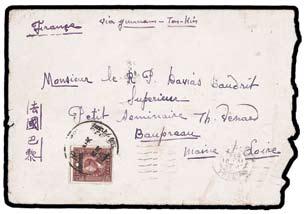 France
via Yunnan - Ton-Kin
Monsieur le R. P. Davids Gaudrit
Superieur
Petit Seminaire Th. Venard
Baupreau
Maine et Loire
法國巴黎